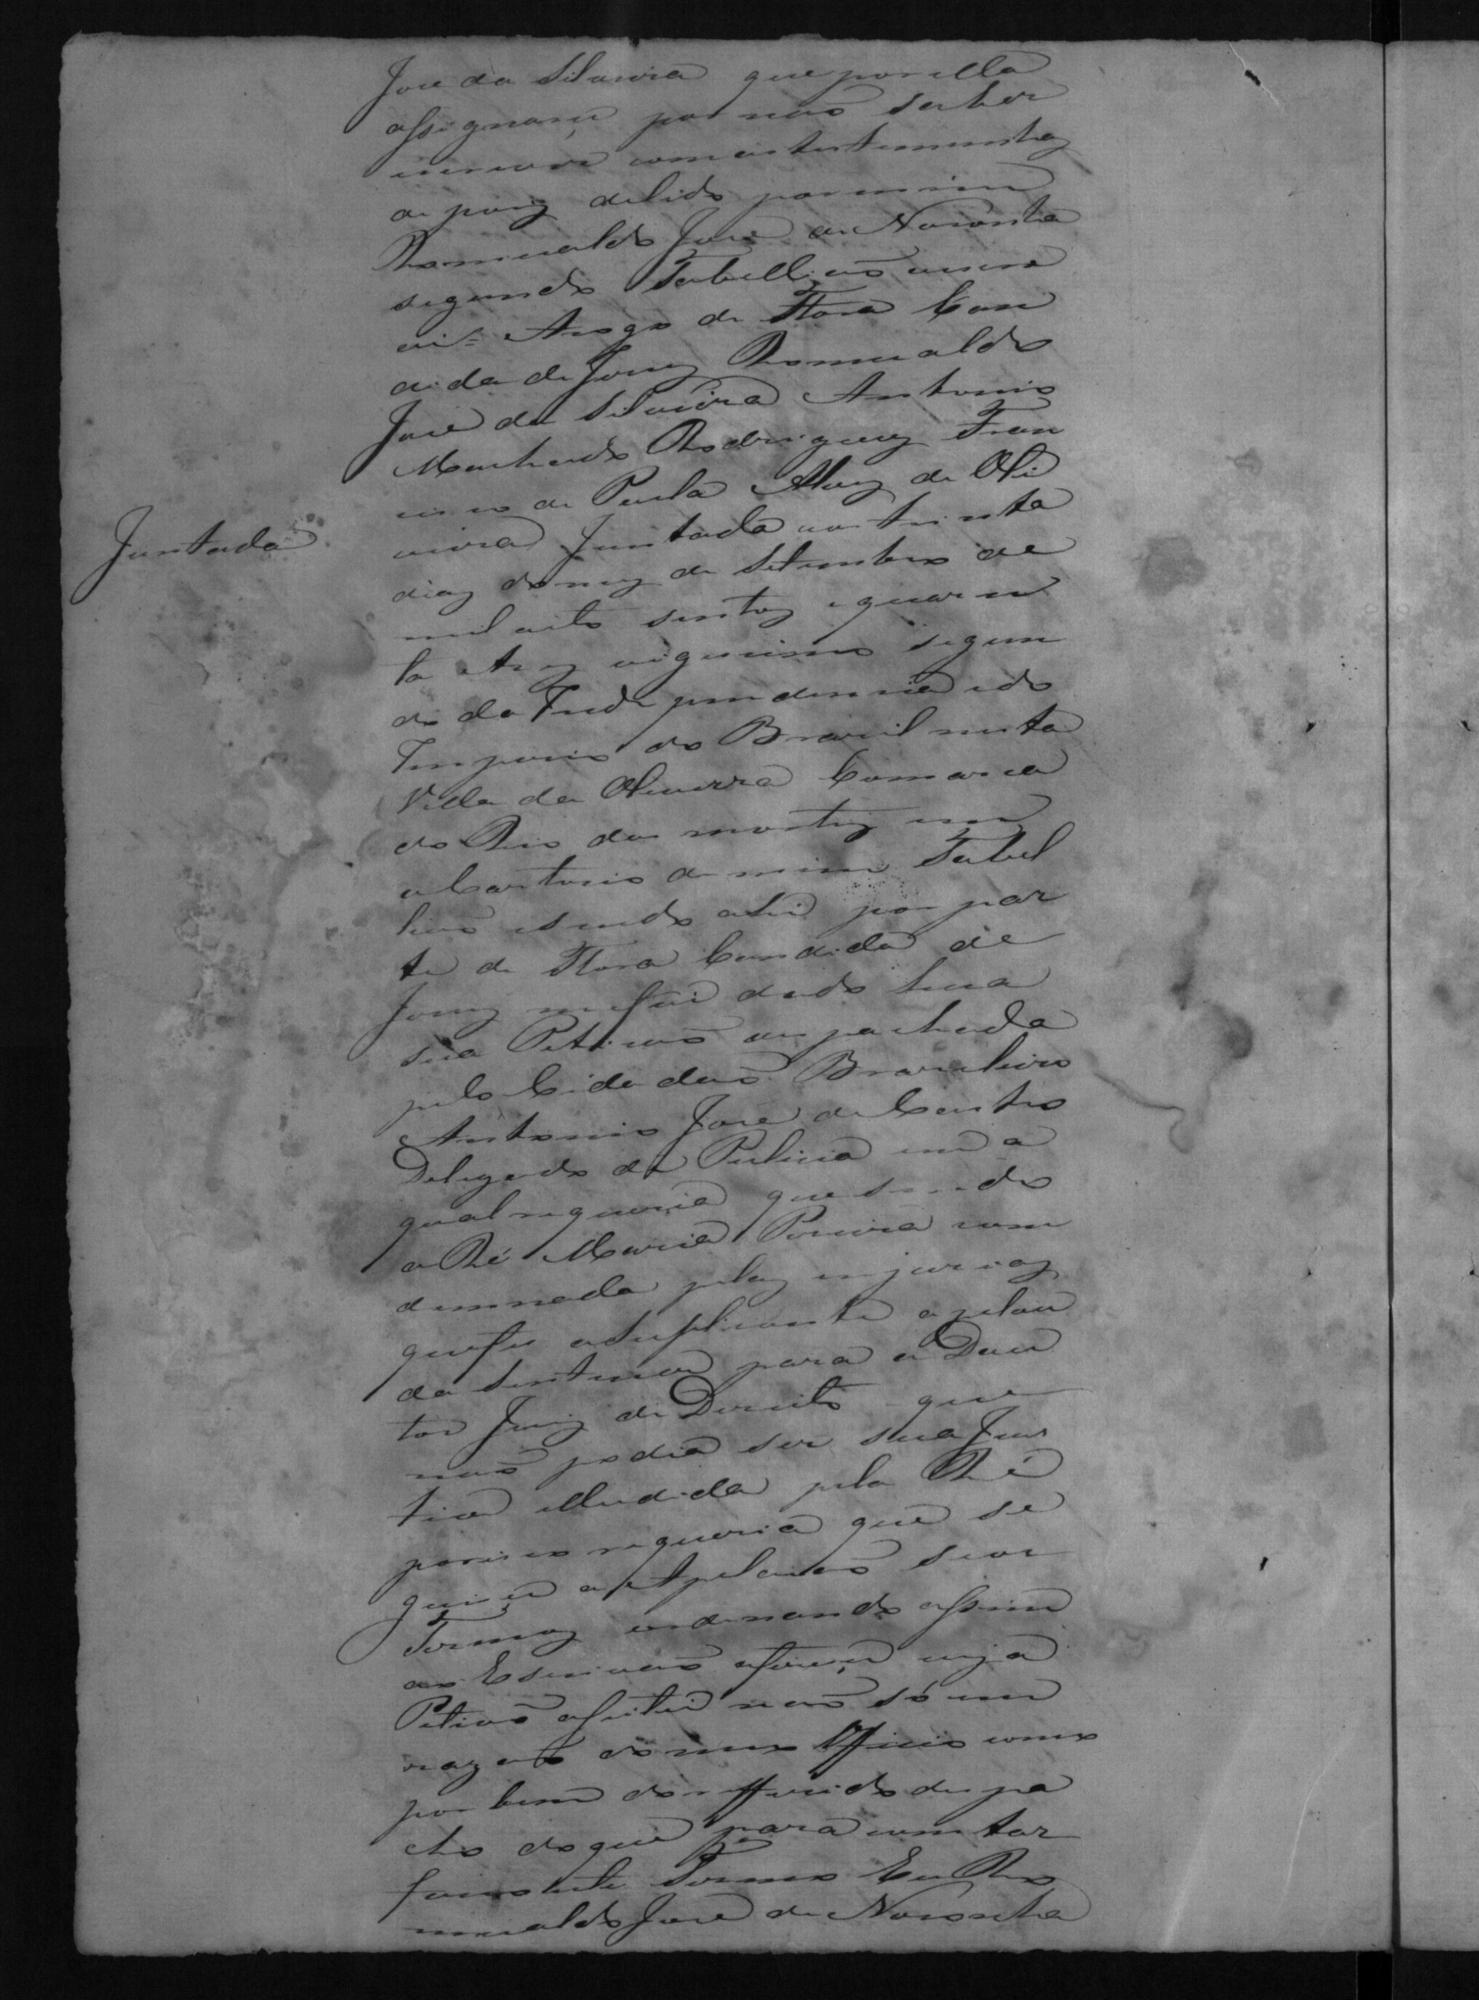 Jose da Silveira que por ella
assignou por não saber
escrever com as testemunhas
depois de lido por mim
Romualdo Jose de Noronha
segundo Tabellião escre
vi = Arogo de Flora Can
dida de Jesus Romualdo
Jose da Silveira Antonio
Machado Rodrigues Fran
cisco de Paula Alves de Oli
veira Juntada aos trinta
Juntada
dias do mes de Setembro de
mil oito sentos e quaren
ta Annos vigessimo segun
do da Independencia e do
Imperio do Brazil nesta
Villa da Oliveira Comarca
do Rio das mortes em
o Cartorio de mim Tabel
lião e sendo ahi por par
te de Flora Candida de
Jesus me foi dado huma
sua Petição despachada
pelo Cidadão Brazileiro
Antonio Jose de Castro
Delegado da Policia em a
qual requeria que sendo
a Ré Maria Pereira com
demnada pelas injurias
que fes a Suplicante apelou
da Sentença para o Dou
tor Juiz de Direito que
não podia ser sua Jus
tiça elludida pela Ré
por isso requeria que se
guisse a Apelação seos
Termos ordenando assim
ao Escrivão cuja
Petição aseitei não só em
razão do meu Officio como
por bem do refferido despa
cho do que para constar
faço este Termo Eu Ro
mualdo Jose de Noronha